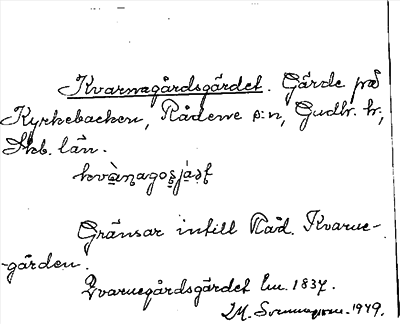 Kvarnagårdsgärdet. Gärde på
Kyrkebacken, Rådene s:n, Gudh. h.,
Skb. län.
Gränsar intill Råd. Kvarne-
-gården.
Qvarnegårdsgärdet Em. 1837.
1949.